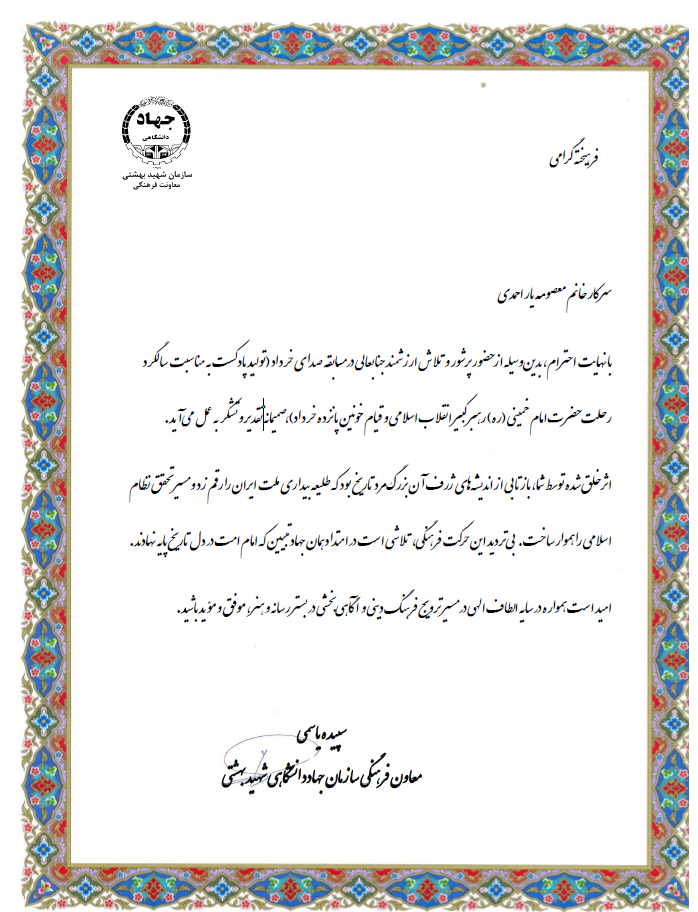 جهاد
دانشگاهی
سازمان شهید بهشتی
معاونت فرهنگی
فرهیخته گرامی
سرکار خانم معصومه یار احمدی
با نهایت احترام، بدین وسیله از حضور پرشور و تلاش ارزشمند جنابعالی در مسابقه صدای خرداد (تولید پادکست به مناسبت سالگرد
رحلت حضرت امام خمینی (ره) رهبر کبیر انقلاب اسلامی و قیام خونین پانزده خرداد)، صمیمانه تقدیر و تشکر به عمل می‌آید.
اثر خلق شده توسط شما، بازتابی از اندیشه‌های ژرف آن بزرگ مرد تاریخ بود که طلیعه بیداری ملت ایران را رقم زد و مسیر تحقق نظام
اسلامی را هموار ساخت. بی‌تردید این حرکت فرهنگی، تلاشی است در امتداد همان جهاد تبیین که امام امت در دل تاریخ پایه نهادند.
امید است همواره در سایه الطاف الهی در مسیر ترویج فرهنگ دینی و آگاهی‌بخشی در بستر رسانه و هنر، موفق و مؤید باشید.
سپیده یاسمی
معاون فرهنگی سازمان جهاد دانشگاهی شهید بهشتی